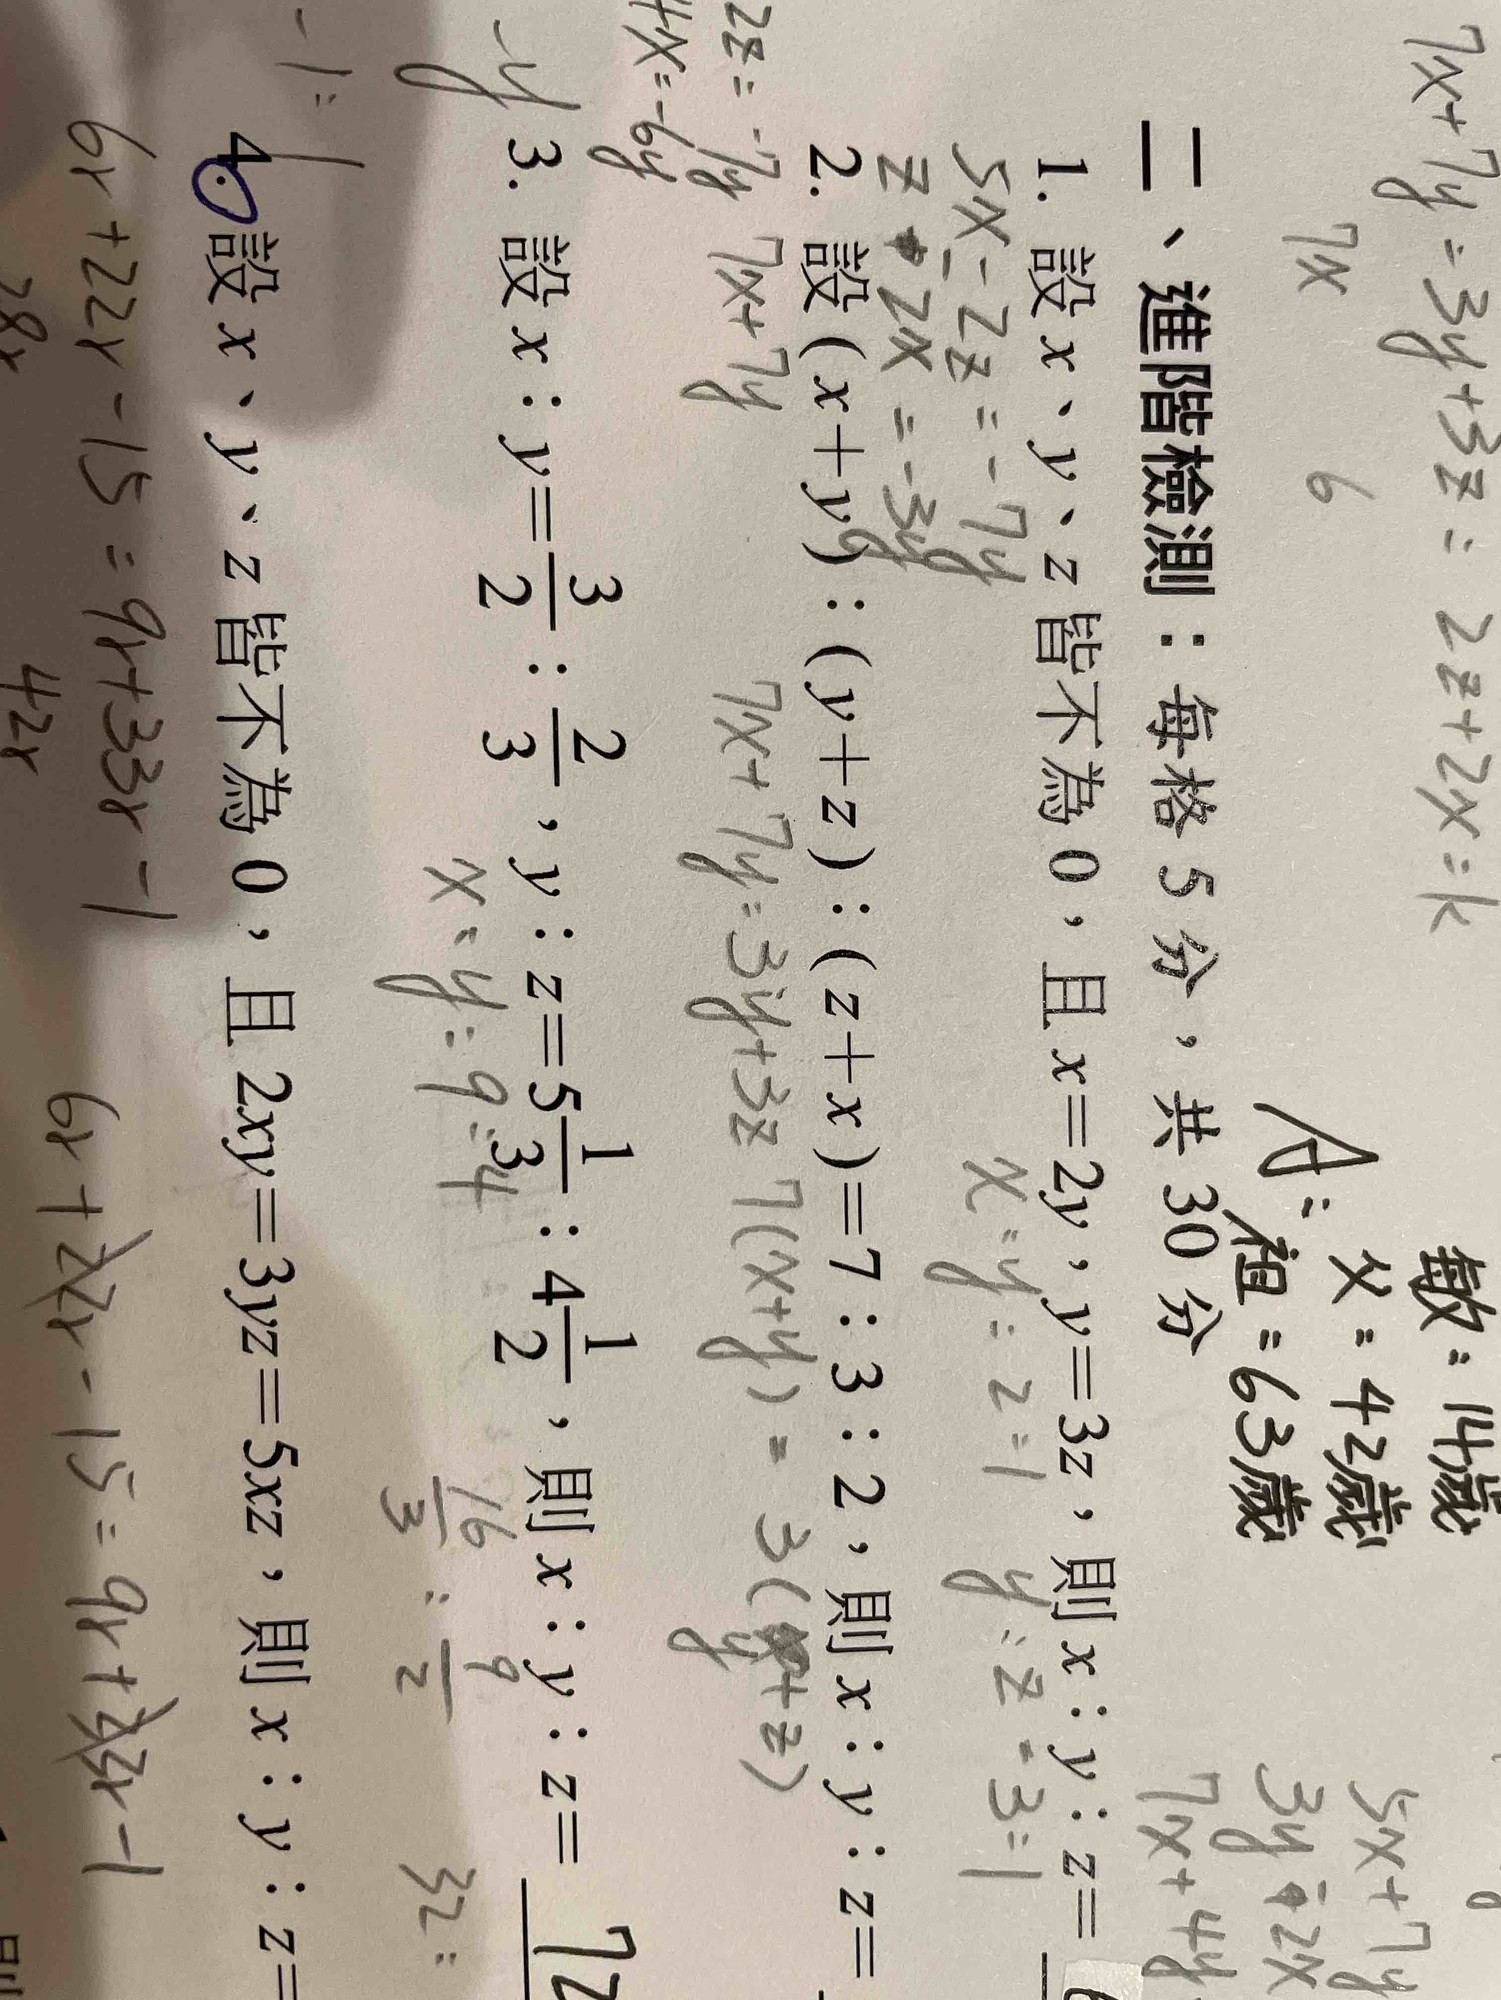 敏=14歲
父=42歲
A:祖=63歲
7x+7y=3y+3z=2z+2x=k
7x 6
二、進階檢測：每格 5 分，共 30 分
5x+7y
3y+2x
7x+4y
1. 設 x、y、z 皆不為 0，且 x=2y，y=3z，則 x：y：z=
5x-2z=-7y
x:y=2=1
y:z=3=1
z+2x=-3y
2. 設 (x+y)：(y+z)：(z+x)=7：3：2，則 x：y：z=
2z=-7y
7x+7y
7x+7y=3y+3z
7(x+y)=3(y+z)
4x=-6y
3. 設 x：y=3/2：2/3，y：z=5 1/3：4 1/2，則 x：y：z= 72
-y
x:y=9:4
16/3:9/2
32:
-1=
4. 設 x、y、z 皆不為 0，且 2xy=3yz=5xz，則 x：y：z=
6r+22r-15=9r+33r-1
6r+22r-15=9r+33r-1
28r
42r